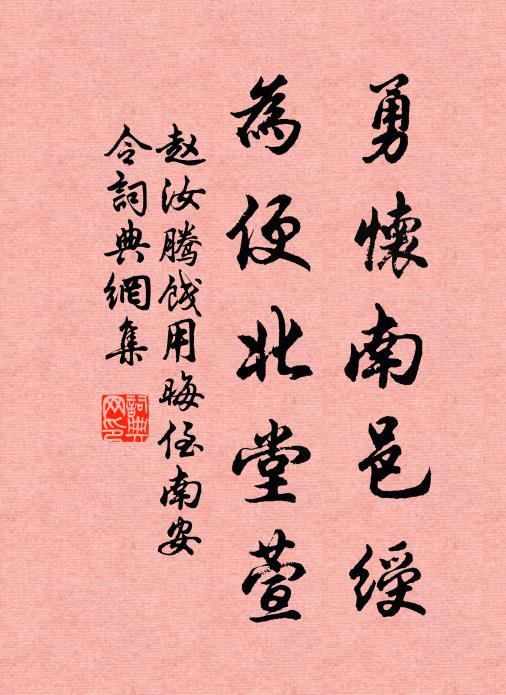 勇懷南邑綬
為便北堂萱
赵汝騰餞用晦侄南安
令詞典網集
詞典网印